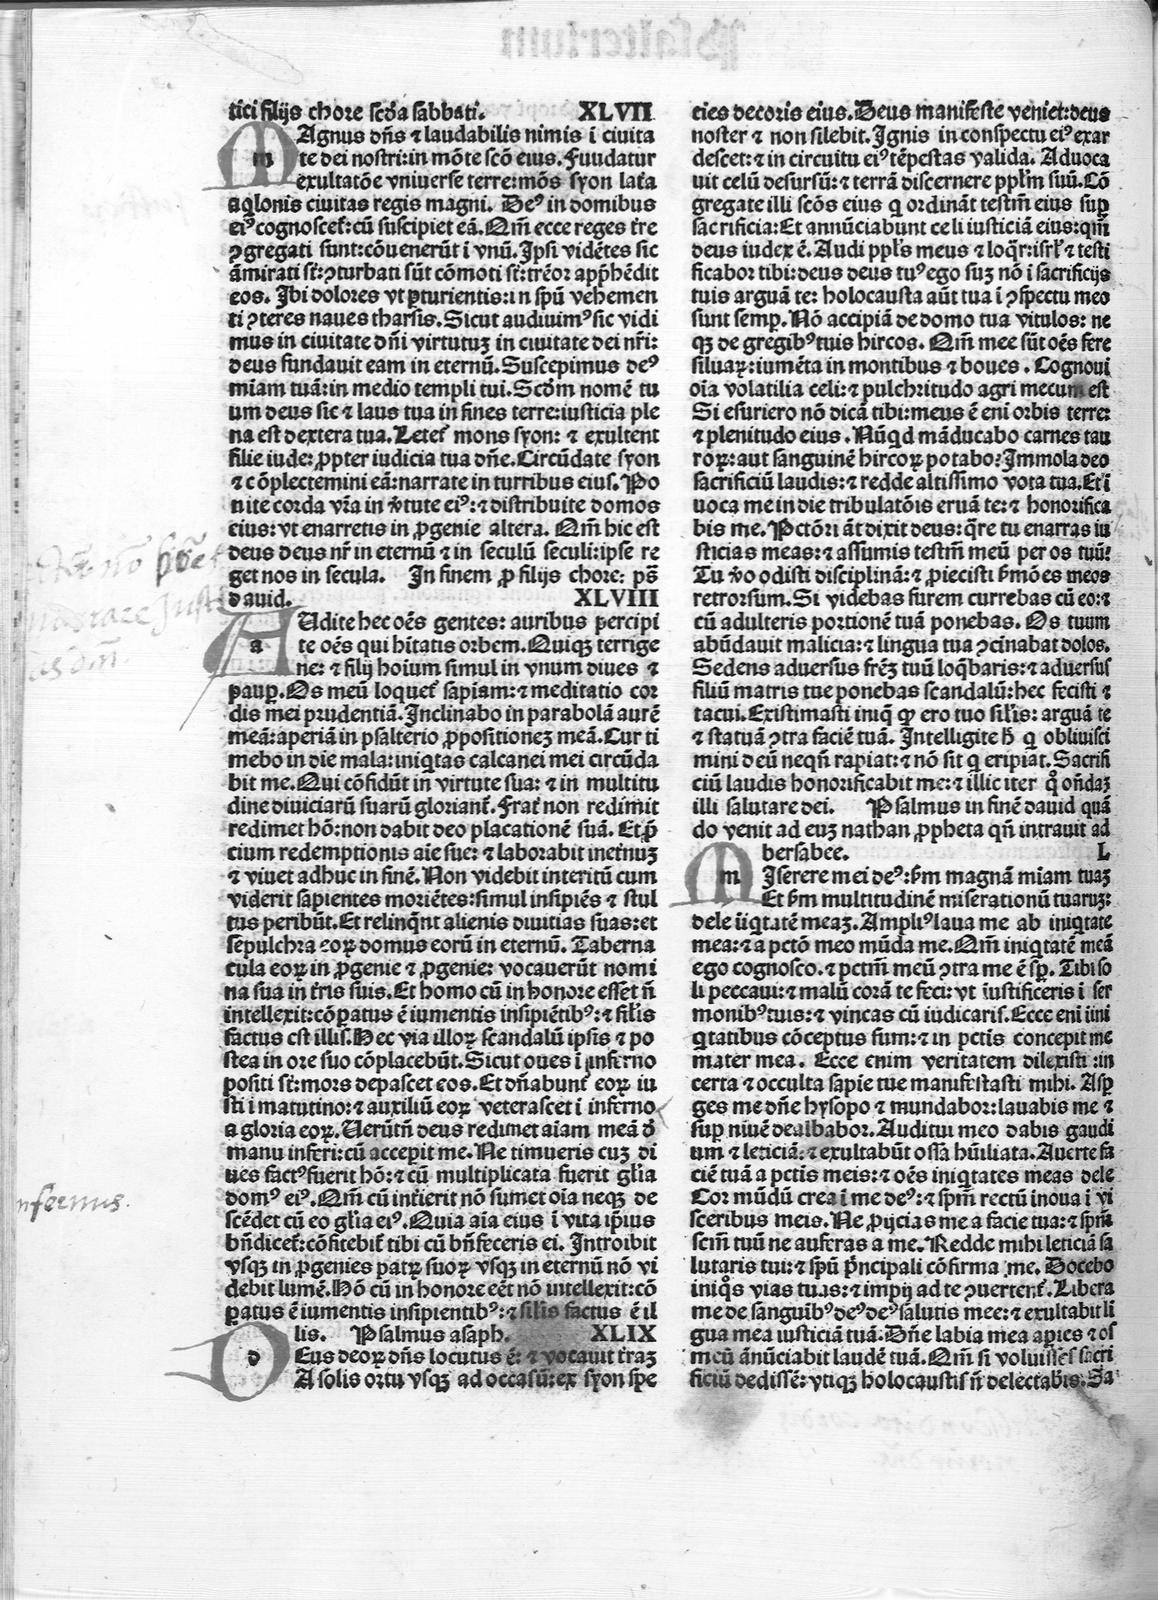 tici filijs chore scd̄a sabbati. XLVII
Agnus dn̄s ⁊ laudabilis nimis ī ciuita
m te dei nostri:in mōte scō eius. Fuudatur
exultatōe vniuerse terre:mōs syon lat̄a
aq̄lonis ciuitas regis magni. Deꝰ in domibus
eiꝰ cognoscet̄:cū suscipiet eā.Qm̄ ecce reges t̄re
ꝯgregati sunt:cōuenerūt ī vnū. Ipsi vidētes sic
āmirati st̄:ꝯturbati sūt cōmoti st̄:trēor app̄hēdit
eos. Ibi dolores vt ꝑturientis:in spū vehemen
ti ꝯteres naues tharsis.Sicut audiuimꝰ sic vidi
mus in ciuitate dn̄i virtutuꝫ in ciuitate dei nr̄i:
deus fundauit eam in eternū.Suscepimus deꝰ
miam tuā:in medio templi tui.Scd̄m nomē tu
um deus sic ⁊ laus tua in fines terre:iusticia ple
na est dextera tua.Letet̄ mons syon: ⁊ exultent
filie iude:ꝓpter iudicia tua dn̄e.Circūdate syon
⁊ cōplectemini eā:narrate in turribus eius.Po
nite corda vr̄a in v̄tute eiꝰ:⁊ distribuite domos
eius:vt enarretis in ꝓgenie altera. Qm̄ hic est
deus deus nr̄ in eternū ⁊ in seculū seculi:ipse re
get nos in secula. In finem ꝓ filijs chore: ps̄
dauid. XLVIII
Udite hec oēs gentes: auribus percipi
a te oēs qui hītatis orbem.Quiqꝫ terrige
ne: ⁊ filij hoium simul in vnum diues ⁊
pauꝑ.Os meū loquet̄ sapiam:⁊ meditatio cor
dis mei prudentiā.Inclinabo in parabolā aurē
meā:aperiā in psalterio ꝓpositioneꝫ meā.Cur ti
mebo in die mala:iniq̄tas calcanei mei circūda
bit me.Qui cōfidūt in virtute sua: ⁊ in multitu
dine diuiciarū suarū gloriant̄.Frat̄ non redimit
redimet hō:non dabit deo placationē suā. Et p̄
cium redemptionis aīe sue: ⁊ laborabit inet̄nuꝫ
⁊ viuet adhuc in finē.Non videbit interitū cum
viderit sapientes moriētes:simul insipiēs ⁊ stul
tus peribūt.Et relinq̄nt alienis diuitias suas:et
sepulchra eoꝝ domus eorū in eternū. Taberna
cula eoꝝ in ꝓgenie ⁊ ꝓgenie: vocauerūt nomi
na sua in t̄ris suis.Et homo cū in honore esset n̄
intellexit:cōꝑatus ē iumentis insipiētibꝰ:⁊ sil̄is
factus est illis.Hec via illoꝝ scandalū ipsis ⁊ po
stea in ore suo cōplacebūt.Sicut oues ī inferno
positi st̄:mors depascet eos.Et dn̄abunt̄ eoꝝ iu
sti ī matutino:⁊ auxiliū eoꝝ veterascet ī inferno
a gloria eoꝝ.Uerūtn̄ deus redimet aiam meā d̄
manu inferi:cū acceꝑit me.Ne timueris cuꝫ di
ues factꝰ fuerit hō:⁊ cū multiplicata fuerit gl̄ia
domꝰ eiꝰ.Qm̄ cū int̄ierit nō sumet oīa neqꝫ de
scēdet cū eo gl̄ia eiꝰ.Quia aīa eius ī vita ip̄ius
bn̄dicet̄:cōfitebit̄ tibi cū bn̄feceris ei. Introibit
vsqꝫ in ꝓgenies patꝝ suoꝝ vsqꝫ in eternū nō vi
debit lumē.Hō cū in honore eēt nō intellexit:cō
ꝑatus ē iumentis insipientibꝰ:⁊ sil̄is factus ē il
lis. Psalmus asaph. XLIX
d Eus deoꝝ dn̄s locutus ē: ⁊ vocauit t̄raꝫ
A solis ortu vsqꝫ ad occasū:ex syon spe
cies decoris eius.Deus manifeste veniet:deus
noster ⁊ non silebit.Ignis in conspectu eiꝰ exar
descet:⁊ in circuitu eiꝰ tēpestas valida. Aduoca
uit celū desursū:⁊ terrā discernere ppl̄m suū.Cō
gregate illi scōs eius q̄ ordināt testm̄ eius suꝑ
sacrificia:Et annūciabunt celi iusticiā eius:qm̄
deus iudex ē.Audi ppl̄s meus ⁊ loq̄r:isrl̄ ⁊ testi
ficabor tibi:deus deus tuꝰ ego suꝫ nō ī sacrificijs
tuis arguā te: holocausta aūt tua ī ꝯspectu meo
sunt semꝑ.Nō accipiā de domo tua vitulos: ne
qꝫ de gregibꝰ tuis hircos. Qm̄ mee sūt oēs fere
siluaꝝ:iumēta in montibus ⁊ boues . Cognoui
oīa volatilia celi:⁊ pulchritudo agri mecum est
Si esuriero nō dicā tibi:meus ē eni orbis terre:
⁊ plenitudo eius.Nūq̄d māducabo carnes tau
roꝝ:aut sanguinē hircoꝝ potabo?Immola deo
sacrificiū laudis:⁊ redde altissimo vota tua.Et ī
uoca me in die tribulatōis eruā te:⁊ honorifica
bis me.Pctōri āt dixit deus:q̄re tu enarras iu
sticias meas:⁊ assumis testm̄ meū per os tuū?
Tu v̄o odisti disciplinā:⁊ ꝓiecisti s̄mōes meos
retrorsum.Si videbas furem currebas cū eo:⁊
cū adulteris portionē tuā ponebas. Os tuum
abūdauit malicia:⁊ lingua tua ꝯcinabat dolos.
Sedens aduersus fr̄eꝫ tuū loq̄baris:⁊ aduersus
filiū matris tue ponebas scandalū:hec fecisti ⁊
tacui.Existimasti iniq̄ ꝙ ero tuo sil̄is: arguā te
⁊ statuā ꝯtra faciē tuā. Intelligite h̄ q̄ obliuisci
mini deū neqn̄ rapiat:⁊ nō sit q̄ eripiat.Sacrifi
ciū laudis honorificabit me:⁊ illic iter q̊ ondaꝫ
illi salutare dei. Psalmus in finē dauid quā
do venit ad euꝫ nathan ꝓpheta qn̄ intrauit ad
bersabee. L
m Iserere mei deꝰ:s̄m magnā miam tuaꝫ
Et s̄m multitudinē miserationū tuaruꝫ:
dele īiq̄tatē meaꝫ.Ampliꝰ laua me ab iniq̄tate
mea:⁊ a pctō meo mūda me.Qm̄ iniq̄tatē meā
ego cognosco.⁊ pctm̄ meū ꝯtra me ē sꝑ.Tibi so
li peccaui:⁊ malū corā te feci:vt iustificeris ī ser
monibꝰ tuis:⁊ vincas cū iudicaris.Ecce eni īini
q̄tatibus cōceptus sum:⁊ in pctis concepit me
mater mea. Ecce enim veritatem dilexisti:in
certa ⁊ occulta sapie tue manifestasti mihi. Asꝑ
ges me dn̄e hysopo ⁊ mundabor:lauabis me ⁊
suꝑ niuē dealbabor.Auditui meo dabis gaudi
um ⁊ leticiā:⁊ exultabūt ossa hūiliata.Auerte fa
ciē tuā a pctis meis:⁊ oēs iniq̄tates meas dele
Cor mūdū crea ī me deꝰ:⁊ spm̄ rectū inoua ī vi
sceribus meis. Ne ꝓijcias me a facie tua:⁊ spm̄
scm̄ tuū ne auferas a me.Redde mihi leticiā sa
lutaris tui:⁊ spū p̄ncipali cōfirma me. Docebo
iniq̊s vias tuas:⁊ impij ad te ꝯuertent̄.Libera
me de sanguibꝰ deꝰ deꝰ salutis mee:⁊ exultabit li
gua mea iusticiā tuā.Dn̄e labia mea aꝑies ⁊ os
meū ānūciabit laudē tuā.Qm̄ si voluisses sacri
ficiū dedissē:vtiqꝫ holocaustis n̄ delectabis.Sa
nfernus.